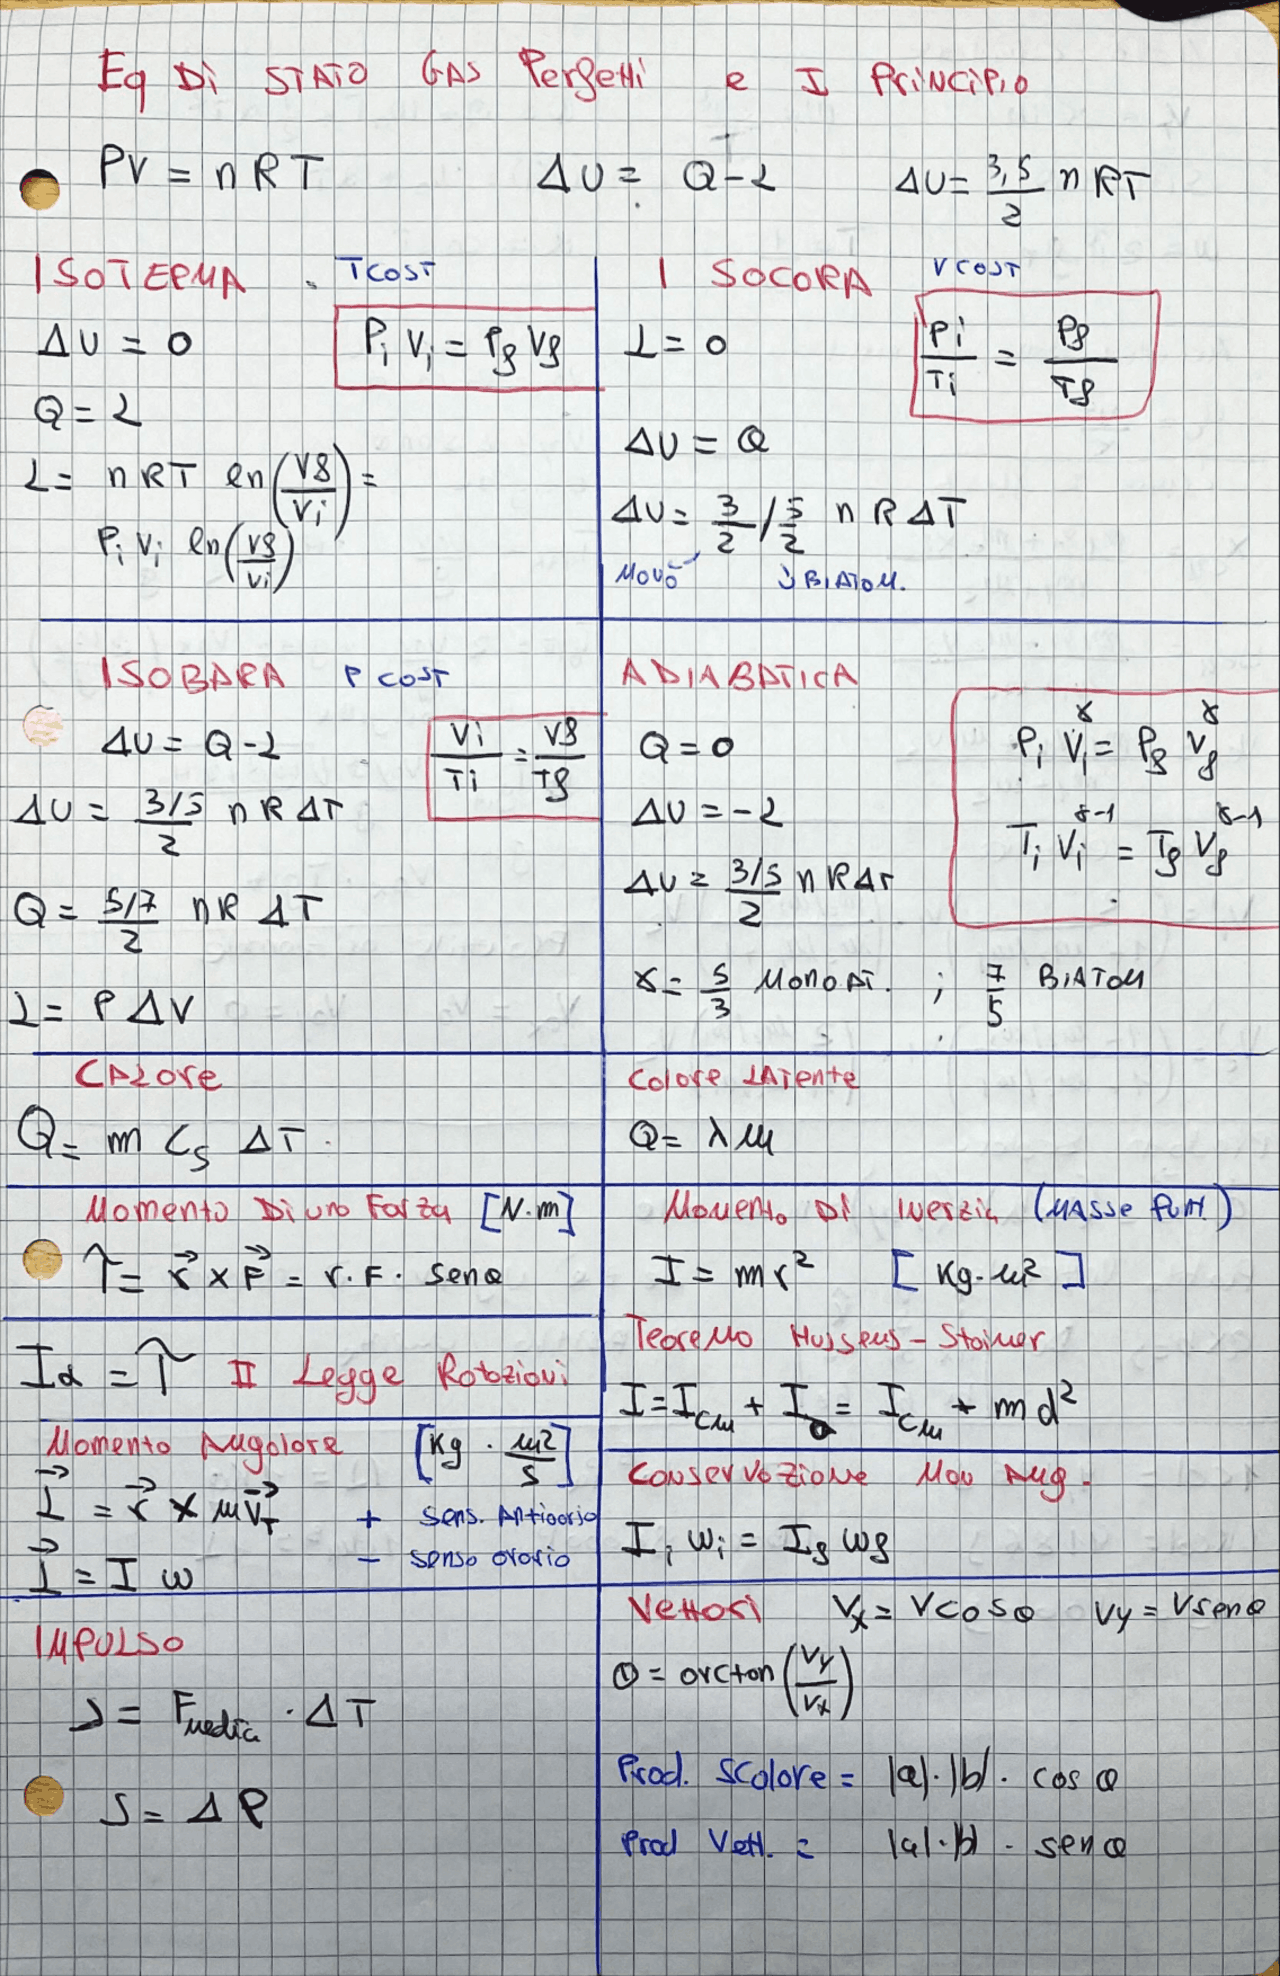 Eq Di STATO GAS Perfetti e I PRiNCiPiO
PV = nRT ΔU = Q-L ΔU = 3,5/2 n RT
ISOTERMA TCOST
ΔU = 0 Pi Vi = Pf Vf
Q = L
L = nRT ln(Vf/Vi) =
Pi Vi ln(Vf/Vi)
ISOCORA VCOST
L = 0 Pi/Ti = Pf/Tf
ΔU = Q
ΔU = 3/2 / 5/2 n R ΔT
MONO BIATOM.
ISOBARA P COST
ΔU = Q-L Vi/Ti = Vf/Tf
ΔU = 3/5/2 n R ΔT
Q = 5/7/2 nR ΔT
L = P ΔV
ADIABATICA
Q = 0 Pi Vi^γ = Pf Vf^γ
ΔU = -L
Ti Vi^γ-1 = Tf Vf^γ-1
ΔU = 3/5/2 n R ΔT
γ = 5/3 MONOAT. ; 7/5 BIATOM
CALore
Q = m Cs ΔT
Calore LATente
Q = λm
Momento Di una Forza [N·m]
τ = r⃗ x F⃗ = r·F· senθ
Momento Di inerzia (MASSe PunT.)
I = mr² [Kg·m²]
Iα = τ II Legge Rotazioni
Teorema Huygens-Steiner
I = Icm + Io = Icm + md²
Momento Angolare [Kg · m²/s]
L⃗ = r⃗ x mv⃗T + sens. Antiorario
L⃗ = I ω - senso orario
Conservazione Mom Ang.
Ii ωi = If ωf
IMPULSO
J = Fmedia · ΔT
J = ΔP
Vettori Vx = Vcosθ Vy = Vsenθ
θ = arctan(Vy/Vx)
Prod. Scalare = |a|·|b|· cosθ
Prod Vett. = |a|·|b| · senθ